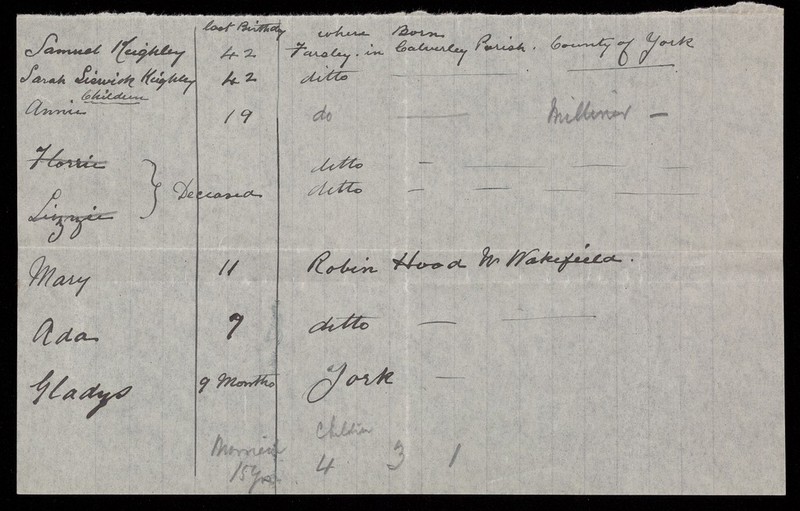 last Birthday where Born
Samuel Keighley 42 Farsley. in Calverley Parish. County of York
Sarah Keighley 42 ditto
Children
Annie 19 do Milliner —
Florrie ditto
Deceased ditto
Lizzie
Mary 11 Robin Hood Nr Wakefield.
Ada 9 ditto —
Gladys 9 Months York —
Children
Married 4 3 1
15 Yrs